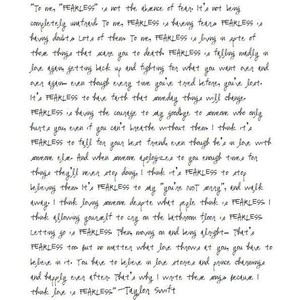 "To me, "FEARLESS" is not the absence of fear. It's not being
completely unafraid. To me, FEARLESS is having fears. FEARLESS is
having doubts. Lots of them. To me, FEARLESS is living in spite of
those things that scare you to death. FEARLESS is falling madly in
love again, getting back up and fighting for what you want over and
over again even though every time you've tried before, you've lost.
It's FEARLESS to have faith that someday things will change.
FEARLESS is having the courage to say goodbye to someone who only
hurts you, even if you can't breathe without them. I think it's
FEARLESS to fall for your best friend, even though he's in love with
someone else. And when someone apologizes to you enough times for
things they'll never stop doing, I think it's FEARLESS to stop
believing them. It's FEARLESS to say "you're NOT sorry", and walk
away. I think loving someone despite what people think is FEARLESS. I
think allowing yourself to cry on the bathroom floor is FEARLESS.
Letting go is FEARLESS. Then, moving on and being alright- That's
FEARLESS too. But no matter what love throws at you, you have to
believe in it. You have to believe in love stories and prince charmings
and happily ever after. That's why I write these songs. Because I
think love is FEARLESS." -Taylor Swift